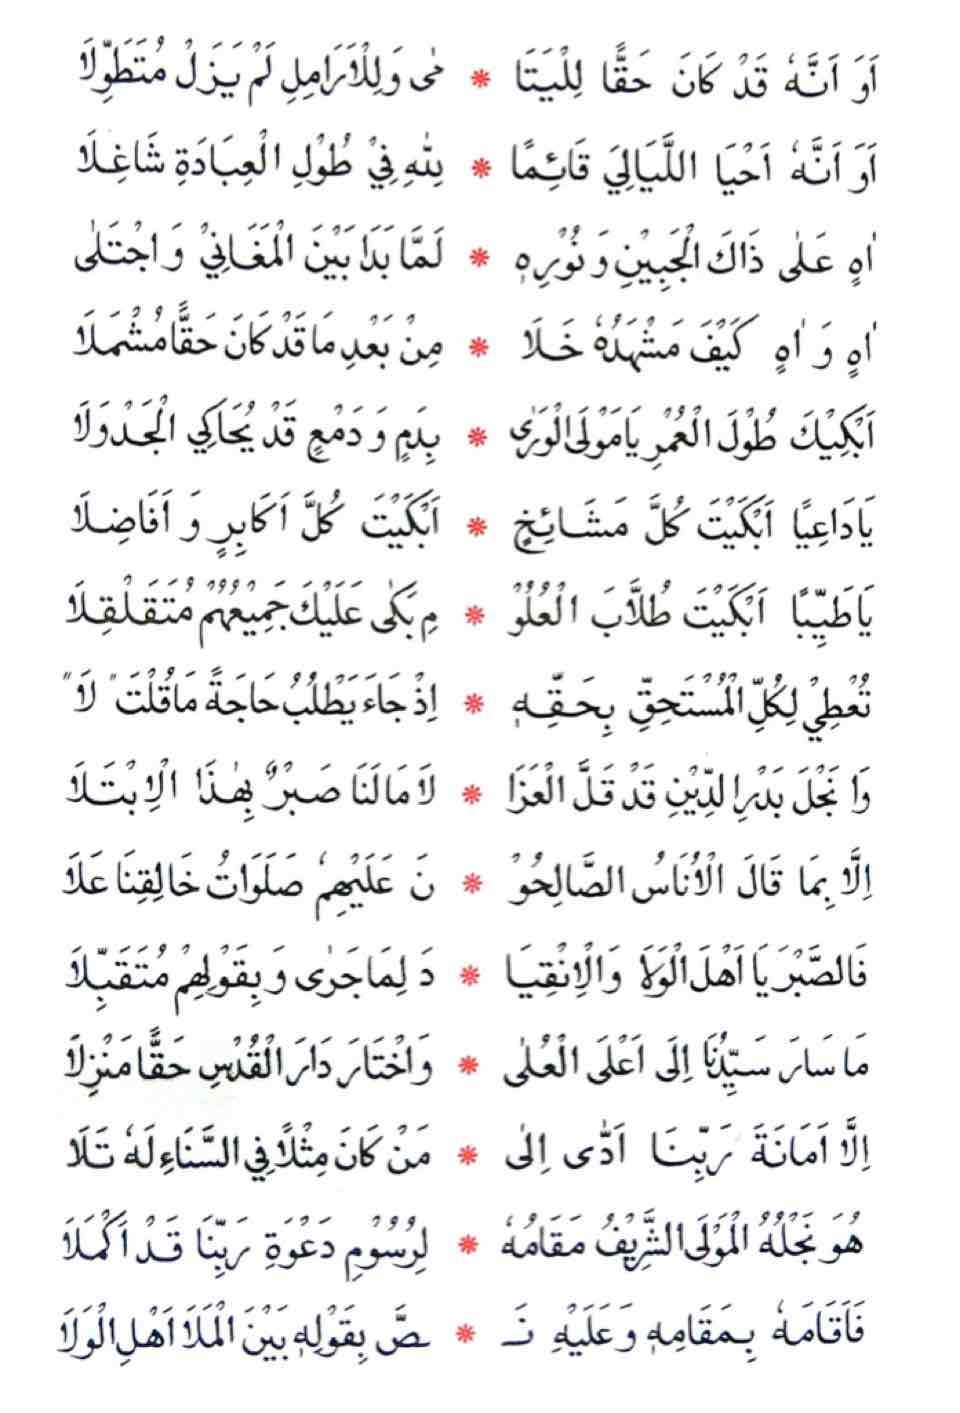 اَوَ اَنَّهٗ قَدْ كَانَ حَقًّا لِلْيَتَا * مٰى وَلِلْاَرَامِلِ لَمْ يَزَلْ مُتَطَوِّلَا
اَوَ اَنَّهٗ اَحْيَا اللَّيَالِيَ قَائِمًا * لِلّٰهِ فِيْ طُوْلِ الْعِبَادَةِ شَاغِلَا
اٰهٍ عَلٰى ذَاكَ الْجَبِيْنِ وَ نُوْرِهٖ * لَمَّا بَدَا بَيْنَ الْمَغَانِيْ وَ اجْتَلٰى
اٰهٍ وَ اٰهٍ كَيْفَ مَشْهَدُهٗ خَلَا * مِنْ بَعْدِ مَا قَدْ كَانَ حَقًّا مُشْمَلَا
اَبْكِيْكَ طُوْلَ الْعُمْرِ يَا مَوْلَى الْوَرٰى * بِدَمٍ وَ دَمْعٍ قَدْ يُحَاكِي الْجَدْوَلَا
يَا دَاعِيًا اَبْكَيْتَ كُلَّ مَشَائِخٍ * اَبْكَيْتَ كُلَّ اَكَابِرٍ وَ اَفَاضِلَا
يَا طَيِّبًا اَبْكَيْتَ طُلَّابَ الْعُلُوْ * مِ بَكٰى عَلَيْكَ جَمِيْعُهُمْ مُتَقَلْقِلَا
تُعْطِيْ لِكُلِّ الْمُسْتَحِقِّ بِحَقِّهٖ * اِذْ جَاءَ يَطْلُبُ حَاجَةً مَا قُلْتَ "لَا"
وَا نَجْلَ بَدْرِ الدِّيْنِ قَدْ قَلَّ الْعَزَا * لَا مَا لَنَا صَبْرٌ بِهٰذَا الْاِبْتَلَا
اِلَّا بِمَا قَالَ الْاُنَاسُ الصَّالِحُوْ * نَ عَلَيْهِمْ صَلَوَاتُ خَالِقِنَا عَلَا
فَالصَّبْرَ يَا اَهْلَ الْوَلَا وَالْاِنْقِيَا * دَ لِمَا جَرٰى وَ بِقَوْلِهِمْ مُتَقَبِّلَا
مَا سَارَ سَيِّدُنَا اِلَى اَعْلَى الْعُلٰى * وَ اخْتَارَ دَارَ الْقُدْسِ حَقًّا مَنْزِلَا
اِلَّا اَمَانَةَ رَبِّنَا اَدّٰى اِلٰى * مَنْ كَانَ مِثْلًا فِي السَّنَاءِ لَهٗ تَلَا
هُوَ نَجْلُهُ الْمَوْلَى الشَّرِيْفُ مَقَامُهٗ * لِرُسُوْمِ دَعْوَةِ رَبِّنَا قَدْ اَكْمَلَا
فَاَقَامَهٗ بِمَقَامِهٖ وَ عَلَيْهِ نَـ * ـصَّ بِقَوْلِهٖ بَيْنَ الْمَلَا اَهْلِ الْوَلَا